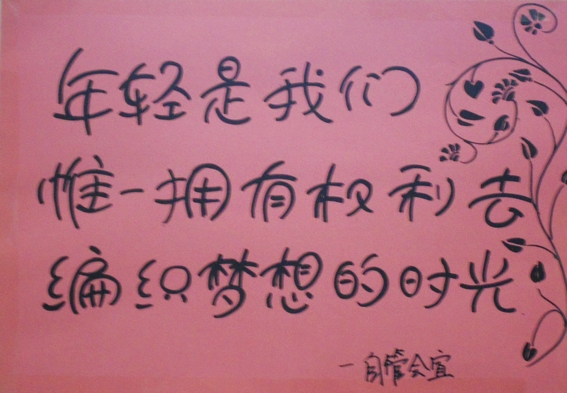 年轻是我们
惟一拥有权利去
编织梦想的时光
一自管会宣